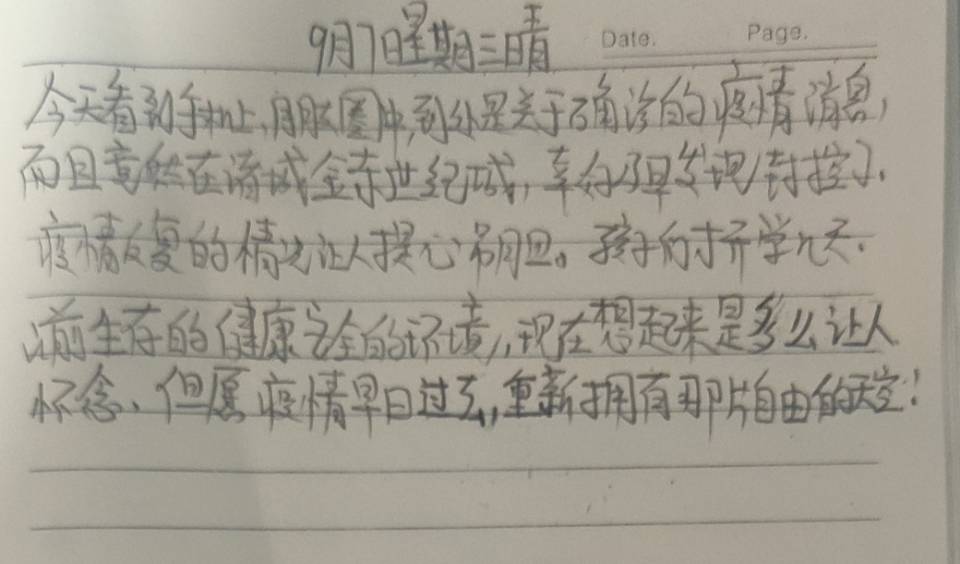 9月7日星期三晴
Date.
Page.
今天看到手机上,朋友圈中,到外是关于确诊的疫情消息,
而且竟然在清城金东世纪城,幸好早发现,封控了.
疫情反复的情况让人提心吊胆。孩子们才开学几天.
以前生存的健康安全的环境,,现在想起来是多么让人
怀念、但愿疫情早日过去,重新拥有那片自由的天空!